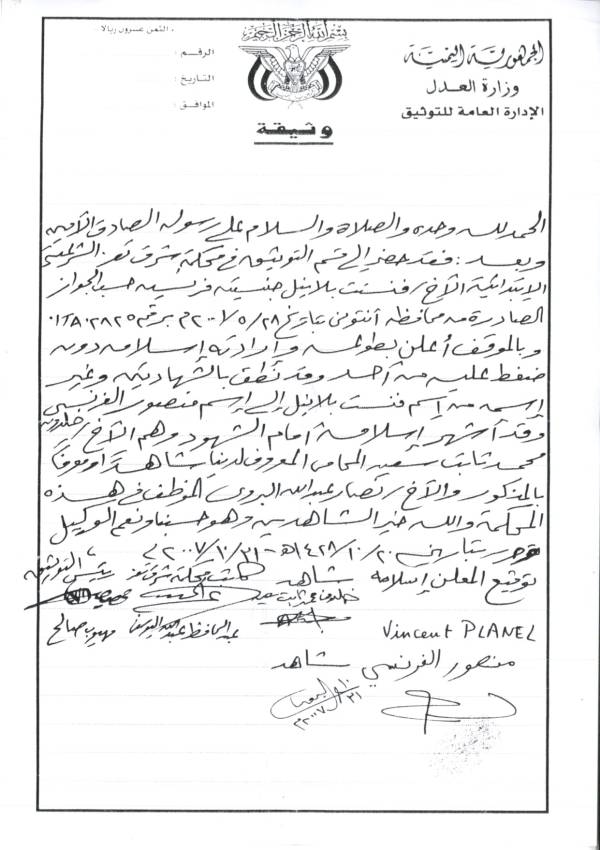 بسم الله الرحمن الرحيم
الجمهورية اليمنية
وزارة العدل
الإدارة العامة للتوثيق
الثمن عشرون ريالا
الرقم :
التاريخ :
الموافق :
وثيقة
الحمد لله وحده والصلاة والسلام على رسوله الصادق الأمين
وبعد : فقد حضر إلى قسم التوثيق في محكمة شرق تعز
الابتدائية الأخ / فنسنت بلانيل جنسيته فرنسية حسب الجواز
الصادرة من محافظة بتاريخ ٢٨/٥/٢٠٠٧م برقم
وبالموقف أعلن بطواعية وإرادته إسلامه دون
ضغط عليه من أحد وقد نطق بالشهادتين وغير
إسمه من إسم فنسنت بلانيل إلى إسم منصور الفرنسي
وقد أشهر إسلامه أمام الشهود وهم الأخ / خلدون
محمد ثابت سعيد المحامي المعروف لدينا شاهداً ومعرفاً
بالمذكور والأخ / عبدالله الموظف في هذه
المحكمة والله خير الشاهدين وهو حسبنا ونعم الوكيل
بتاريخ ٢٠/١٠/١٤٢٨هـ ٣١/١٠/٢٠٠٧م
توقيع المعلن إسلامه شاهد كاتب محكمة شرق تعز رئيس التوثيق
عبدالحافظ عبدالله مهيوب صالح
Vincent PLANEL
منصور الفرنسي شاهد